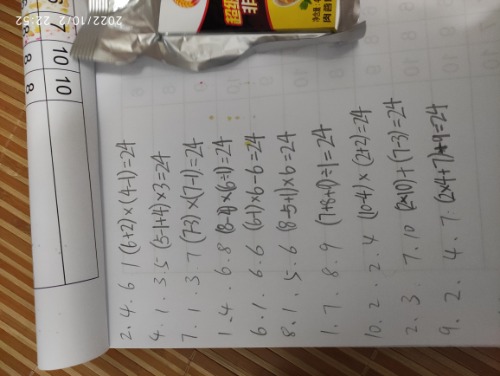 2022/10/2 22:52
超级
非
7
10 10
8 8
2.4.6 1 (6+2)×(4-1)=24
4.1.3.5 (5-1+4)×3=24
7.1.3 7 (7-3)×(7-1)=24
1.4.6.8 (8-4)×(6÷1)=24
6.1.6.6 (6-1)×6-6=24
8.1.5.6 (8-5+1)×6=24
1.7.8.9 (7+8+9)÷1=24
10.2.2.4 (10-4)×(2+2)=24
2.3.7.10 (2×10)+(7-3)=24
9.2.4.7: (2×4+7)+9=24